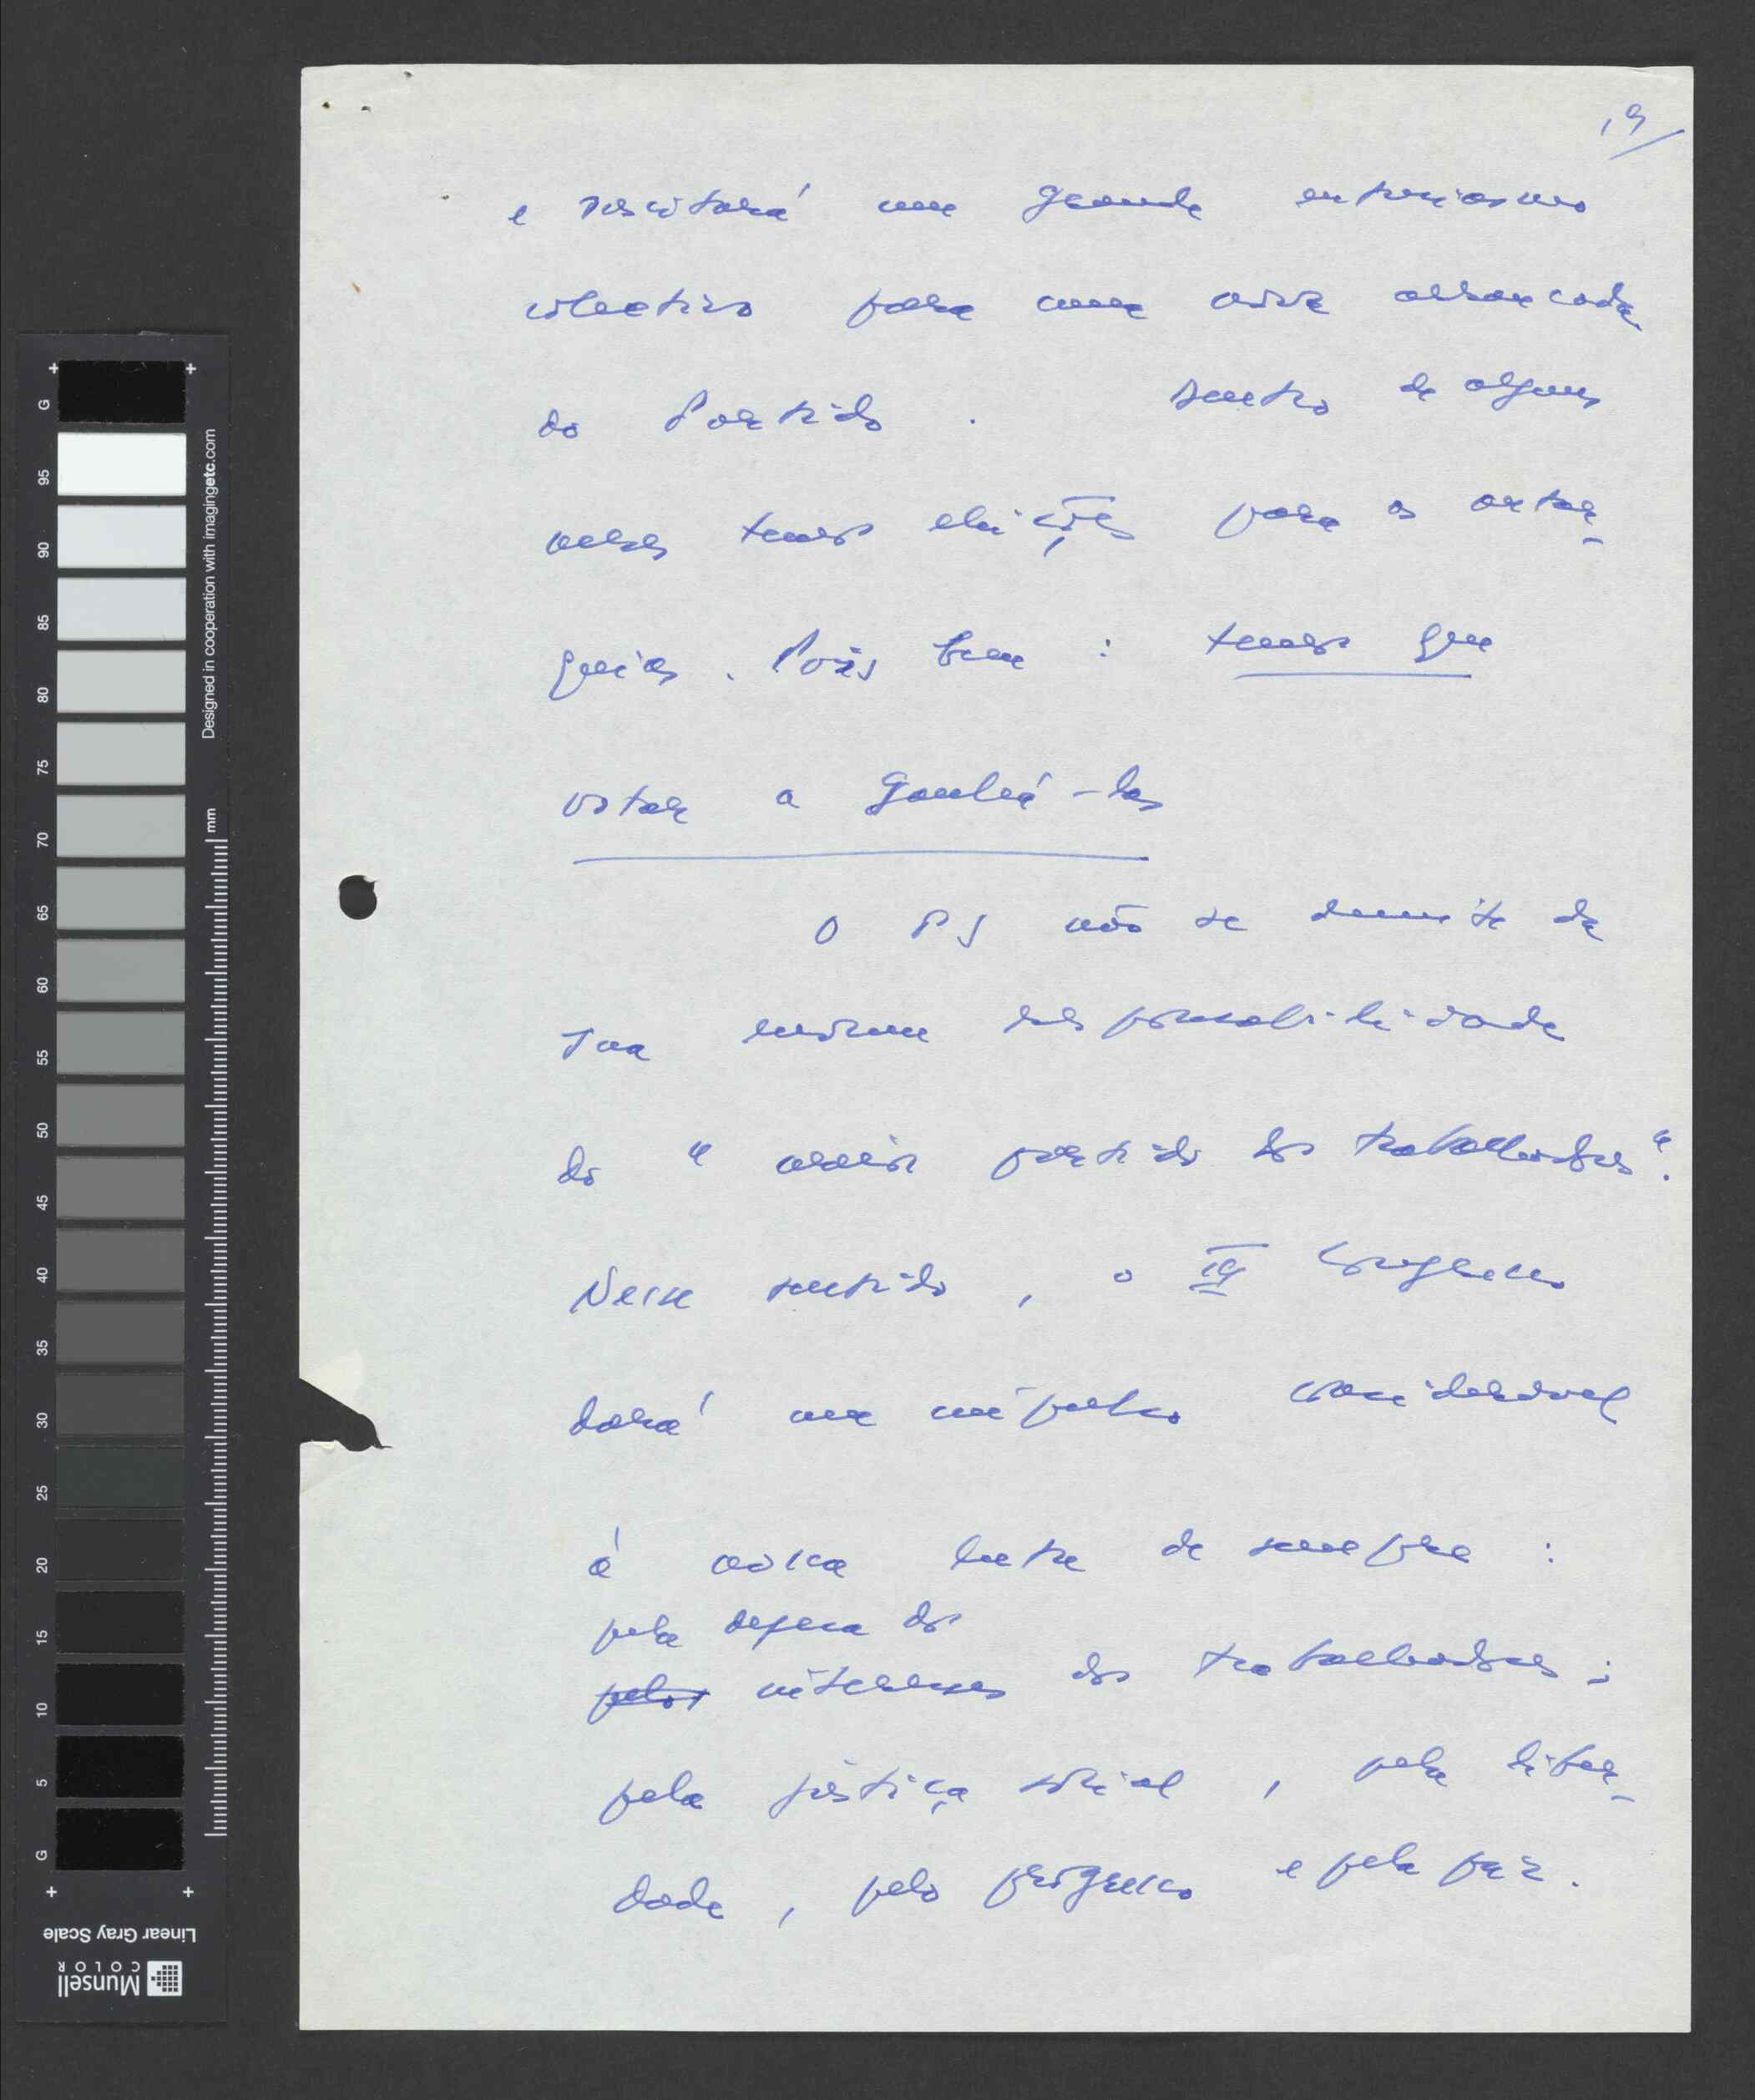 19
e suscitará um grande entusiasmo
colectivo para uma nova arrancada
do Partido. Dentro de alguns
meses temos eleições para as autar-
quias. Pois bem: temos que
votar a ganhá-las
O PS não se demite da
sua enorme responsabilidade
do "maior partido dos trabalhadores".
Nesse sentido, o III Congresso
dará um impulso considerável
à nossa luta de sempre:
pela defesa dos
pelos interesses dos trabalhadores;
pela justiça social, pela liber-
dade, pelo progresso e pela paz.
G
95
90
85
80
75
70
65
60
55
50
45
40
35
30
25
20
15
10
5
G
Designed in cooperation with imagingetc.com
mm
Linear Gray Scale
Munsell
COLOR